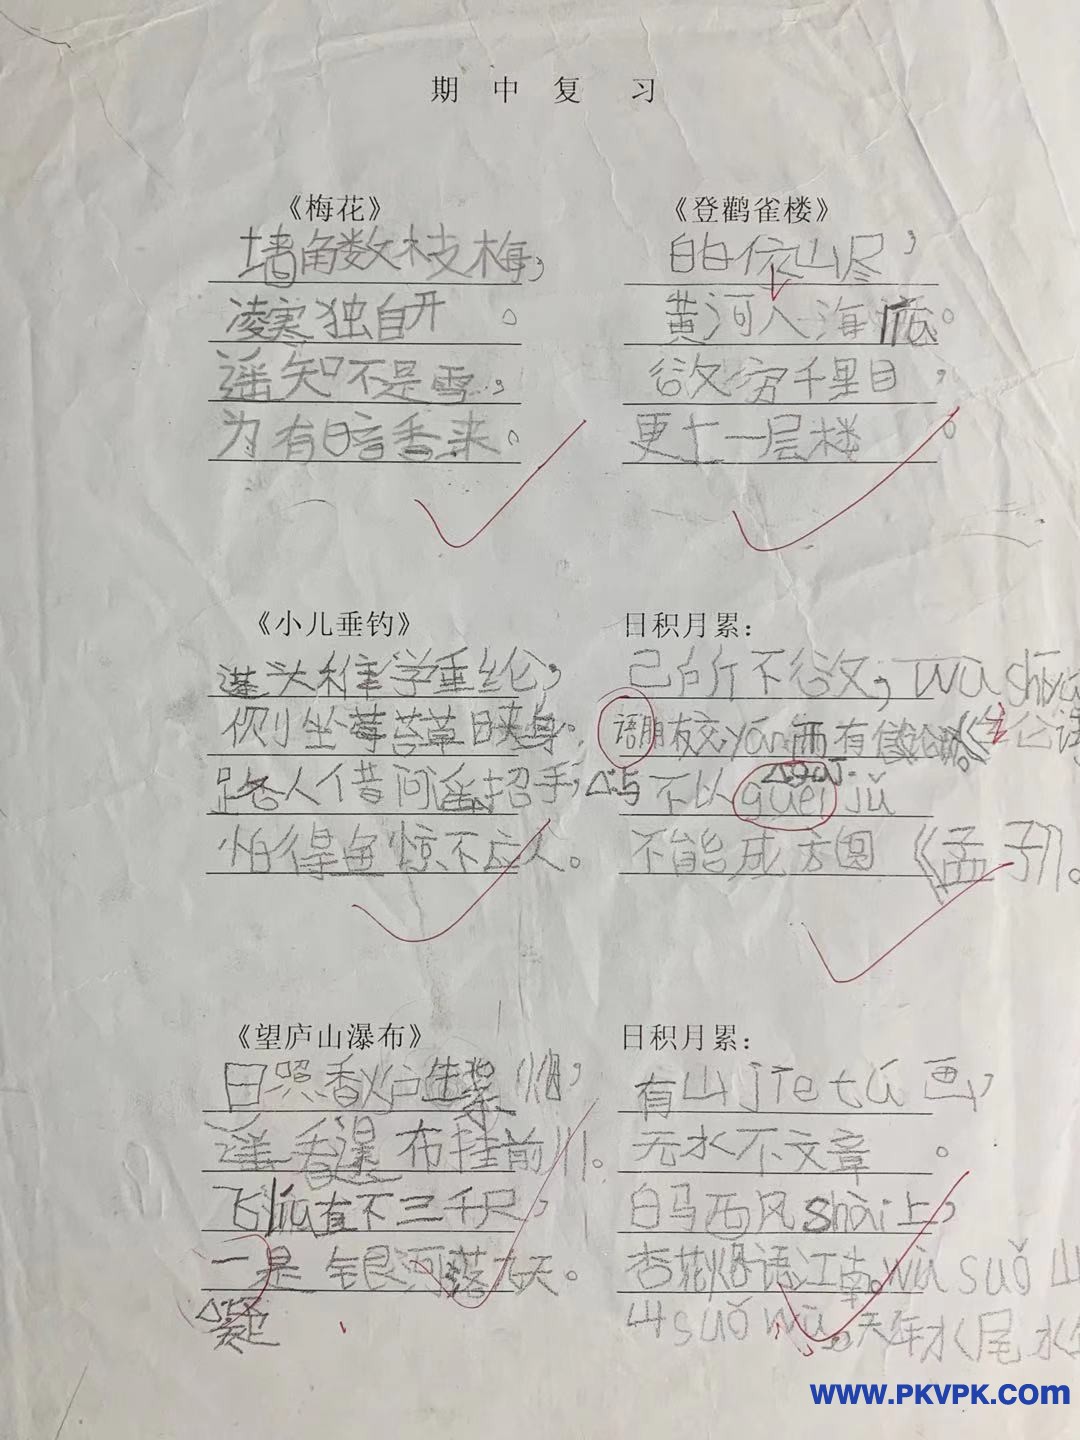 期中复习
《梅花》
墙角数枝梅，
凌寒独自开。
遥知不是雪，
为有暗香来。
《登鹳雀楼》
白日依山尽，
黄河入海流。
欲穷千里目，
更上一层楼。
《小儿垂钓》
蓬头稚学垂纶，
侧坐莓苔草映身。
路人借问遥招手，
怕得鱼惊不应人。
日积月累：
己所不欲，wù shī yú
语朋友交yán而有信《论语
与
不以guei jǔ
不能成方圆《孟子》。
《望庐山瀑布》
日照香炉生紫烟，
遥看瀑布挂前川。
飞liú直下三千尺，
一是银河落九天。
疑
日积月累：
有山jiē tú画，
无水不文章。
白马西风shài上，
杏花烟语江南。wù suǒ
山suǒ wū。天年水尾水
www.PKVPK.com